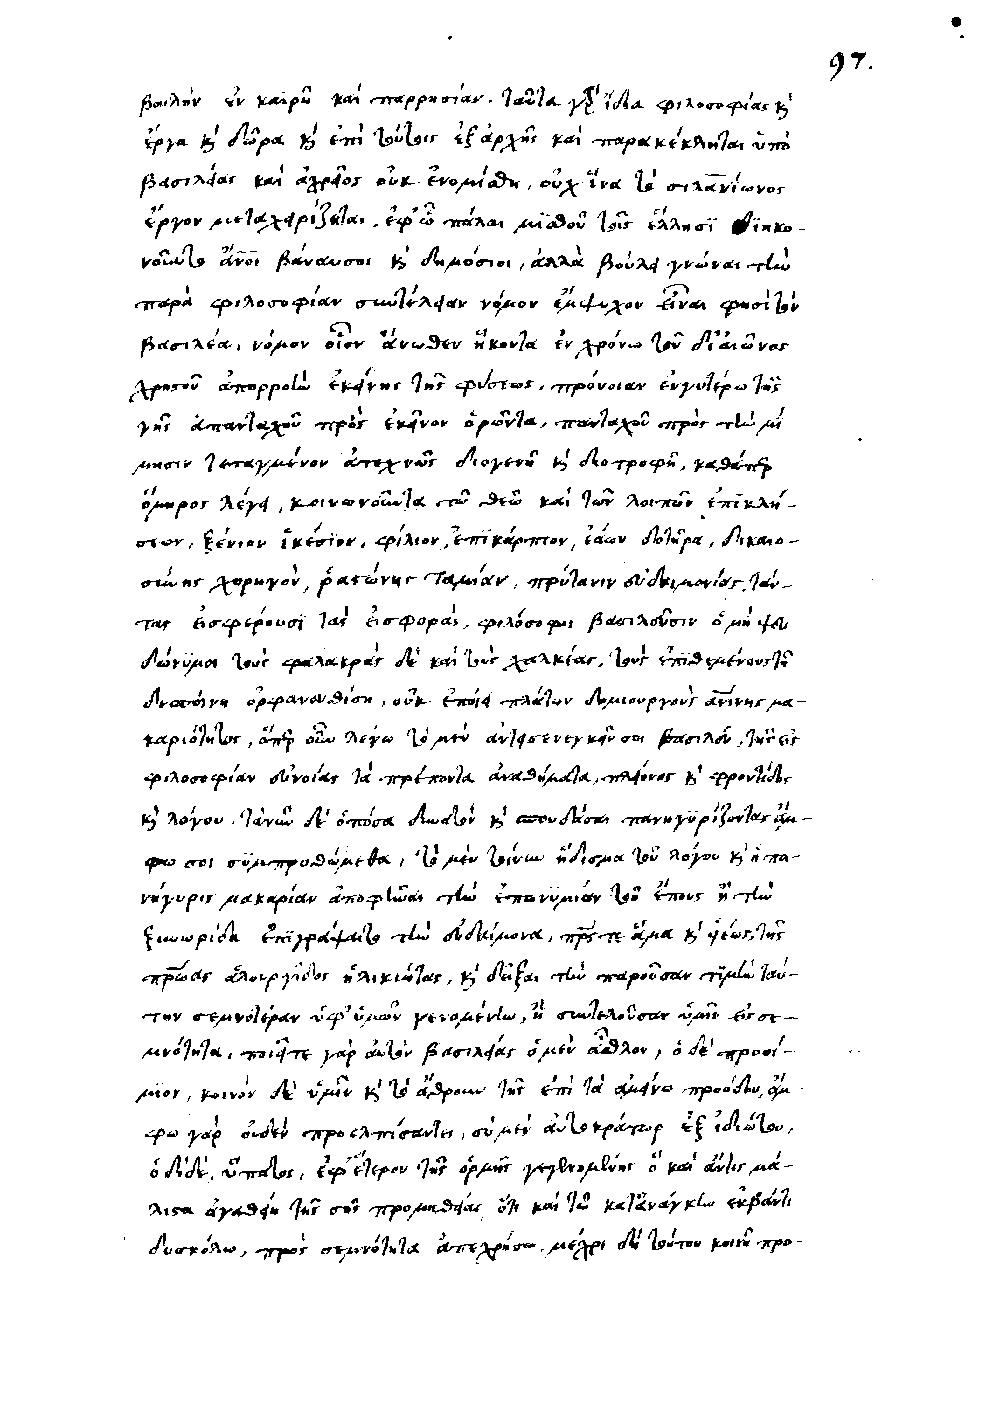 97.
βουλὴν ἐν καιρῶ καὶ παρρησίαν. ταῦτα γὰρ ἴδια φιλοσοφίας κ
ἔργα κ δῶρα κ ἐπὶ τούτοις ἐξ ἀρχῆς καὶ παρακέκληται ὑπὸ
βασιλείας καὶ ἀχρεῖος οὐκ ἐνομίσθη, οὐχ ἵνα τὸ σιλανίωνος
ἔργον μεταχειρίζεται, ἐφ' ὧ πάλαι μισθοῦ τοῖς ἕλλησι διηκο-
νοῦντο ἄνοι βάναυσοι κ δημόσιοι, ἀλλὰ βούλει γνῶναι τὴν
παρὰ φιλοσοφίαν συντέλειαν νόμον ἔμψυχον εἶναι φησὶ τὸν
βασιλέα, νόμον θεῖον ἄνωθεν ἥκοντα ἐν χρόνω τοῦ δι' αἰῶνος
χρηστοῦ ἀπορροὴν ἐκείνης τῆς φύσεως, πρόνοιαν ἐγγυτέρω τῆς
γῆς ἁπανταχοῦ πρὸς ἐκεῖνον ὁρῶντα, πανταχοῦ πρὸς τὴν μί
μησιν τεταγμένον ἀτεχνῶς διογενῆ κ διοτροφῆ, καθάπερ
ὅμηρος λέγει, κοινωνοῦντα τῶ θεῶ καὶ τῶν λοιπῶν ἐπικλή-
σεων, ξένιον ἱκέσιον, φίλιον, ἐπικάρπιον, ἐάων δοτῆρα, δικαιο-
σύνης χορηγὸν, ῥαστώνης ταμίαν, πρύτανιν εὐδαιμονίας, ταύ-
τας εἰσφέρουσι τὰς εἰσφορὰς, φιλόσοφοι βασιλεῦσιν ὁ μὴ ψευ
δώνυμοι τοὺς φαλακρὰς δὲ καὶ τοὺς χαλκέας, τοὺς ἐπιθεμένους τῆ
δεσποίνη ὀρφανωθείση, οὐκ ἐποίει πλάτων δημιουργοὺς ἀνίνης μα-
καριότητος, ὅπερ οὖν λέγω τὸ μὲν ἀντεισενεγκεῖν σοι βασιλεῦ, τῆς εἰς
φιλοσοφίαν εὐνοίας τὰ πρέποντα ἀναθήματα, πλείονος κ φροντίδος
κ λόγου. τανῦν δὲ ὁπόσα δυνατὸν κ σπουδάσαι πανηγυρίζοντας ἄμ-
φω σοι συμπροθώμεθα, τὸ μὲν τοίνυν ἥδισμα τοῦ λόγου κ ἡ πα-
νήγυρις μακαρίαν ἀποφῆναι τὴν ἐπωνυμίαν τοῦ ἔτους ἣ τὴν
ξυνωρίδα ἐπιγράψαιτο τὴν εὐδαίμονα, πρός τε ἅμα κ τῆς
πρώτας ἁλουργίδος ἡλικιώτας, κ δεῖξαι τὴν παροῦσαν τιμὴν ταύ-
την σεμνοτέραν ὑφ' ὑμῶν γενομένην, ἢ συντελοῦσας ὑμῖν εἰς σε-
μνότητα, ποιεῖτε γὰρ αὐτὸν βασιλείας ὁ μὲν ἆθλον, ὁ δὲ προοί-
μιον, κοινὸν δὲ ὑμῖν κ τὸ ἄθρουν τῆς ἐπὶ τὰ ἀμείνω προόδου, ἄμ-
φω γὰρ οὐδὲν προελπίσαντες, σὺ μὲν αὐτοκράτωρ ἐξ ἰδιώτου,
ὁ δὲ δὲ, ὕπατος, ἐφ' ἕτερον τῆς ὁρμῆς γεγενημένης ὃ καὶ αὖτις μά-
λιστα ἀγασθείη τῆς σῆς προμηθείας ὅτι καὶ τῶ κατ' ἀνάγκην ἐκβάντι
δυσκόλω, πρὸς σεμνότητα ἀπεχρήσω. μέχρι δὲ τούτου κοινῆ προ-